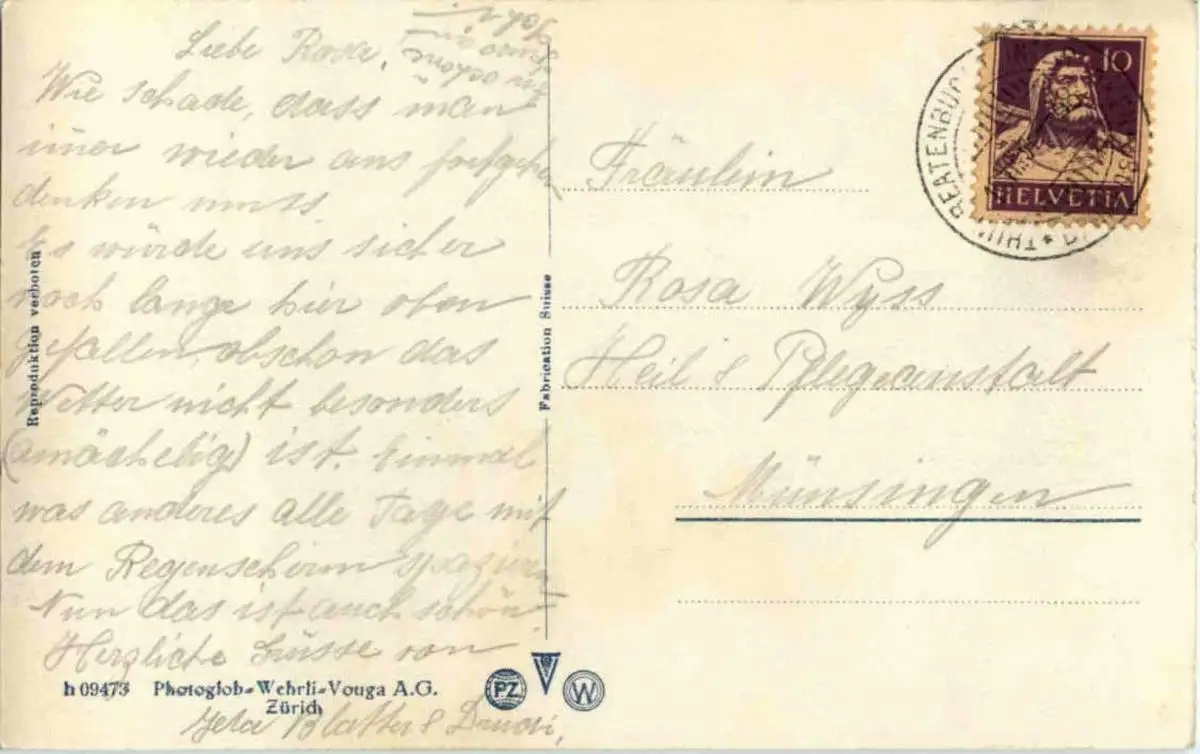 Liebe Rosa,
Wie schade, dass man
im̄er wieder ans fortgehen
denken muss.
Es würde uns sicher
noch lange hier oben
gefallen, obschon das
Wetter nicht besonders
(amächelig) ist. Einmal
was anderes alle Tage mit
dem Regenschirm spazieren
Nun das ist auch schön!
Herzliche Grüsse von
Blatter &
Reproduktion verboten
h 09473 Photoglob-Wehrli-Vouga A.G.
Zürich
PZ
W
Fabrication Suisse
10
HELVETIA
BEATENBUCHT
THUN
Fräulein
Rosa Wyss
Heil & Pflegeanstalt
Münsingen